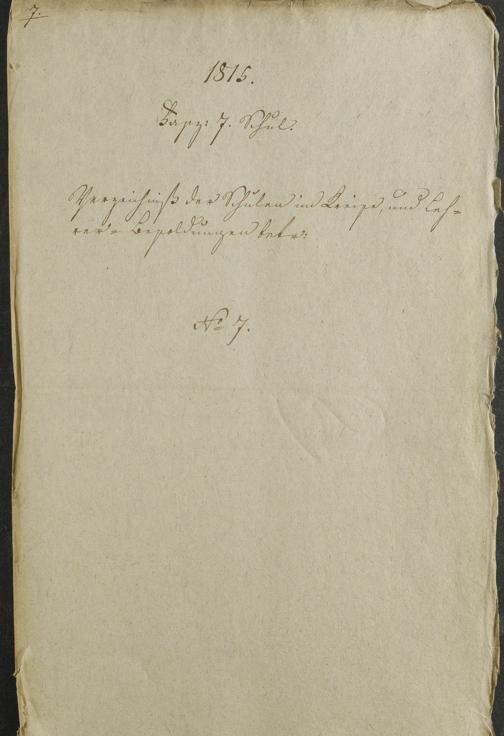 7.
1815.
7. Schul.
Verzeichniß der Schulen im Kreise, und Leh-
rer-Besoldungen betr:
No 7.